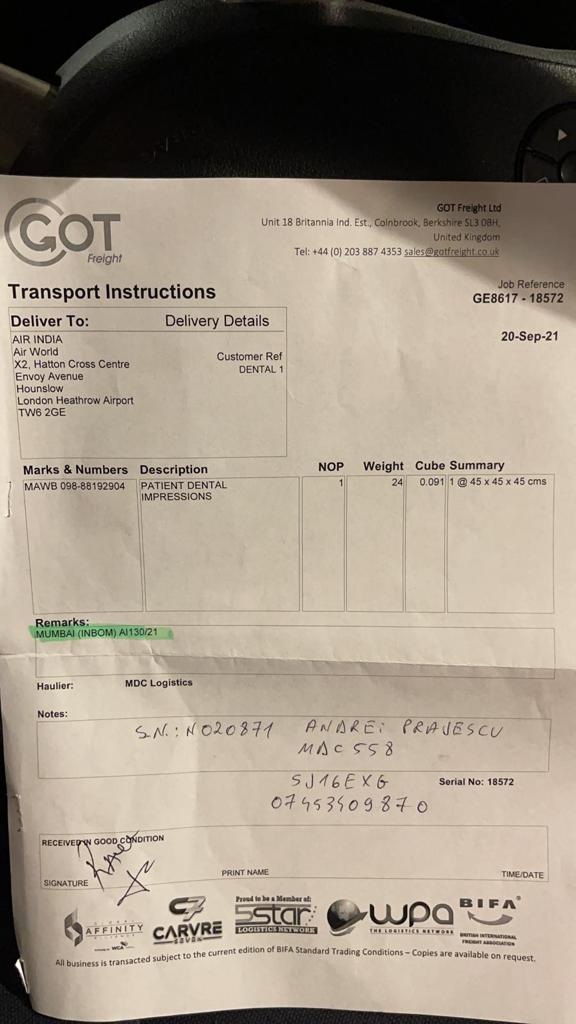 GOT
Freight
GOT Freight Ltd
Unit 18 Britannia Ind. Est., Colnbrook, Berkshire SL3 0BH,
United Kingdom
Tel: +44 (0) 203 887 4353 sales@gotfreight.co.uk
Transport Instructions
Job Reference
GE8617 - 18572
20-Sep-21
Deliver To: Delivery Details
AIR INDIA
Air World
X2, Hatton Cross Centre
Envoy Avenue
Hounslow
London Heathrow Airport
TW6 2GE
Customer Ref
DENTAL 1
Marks & Numbers Description NOP Weight Cube Summary
MAWB 098-88192904 PATIENT DENTAL 1 24 0.091 1 @ 45 x 45 x 45 cms
IMPRESSIONS
Remarks:
MUMBAI (INBOM) AI130/21
Haulier: MDC Logistics
Notes:
S.N.: N020871 ANDREI PRAJESCU
MDC 558
SJ16EXG Serial No: 18572
07453409870
RECEIVED IN GOOD CONDITION
SIGNATURE PRINT NAME TIME/DATE
AFFINITY
WCA
C7
CARVRE
SEVEN
Proud to be a Member of:
5star
LOGISTICS NETWORK
wpa
THE LOGISTICS NETWORK
BIFA
BRITISH INTERNATIONAL
FREIGHT ASSOCIATION
All business is transacted subject to the current edition of BIFA Standard Trading Conditions – Copies are available on request.